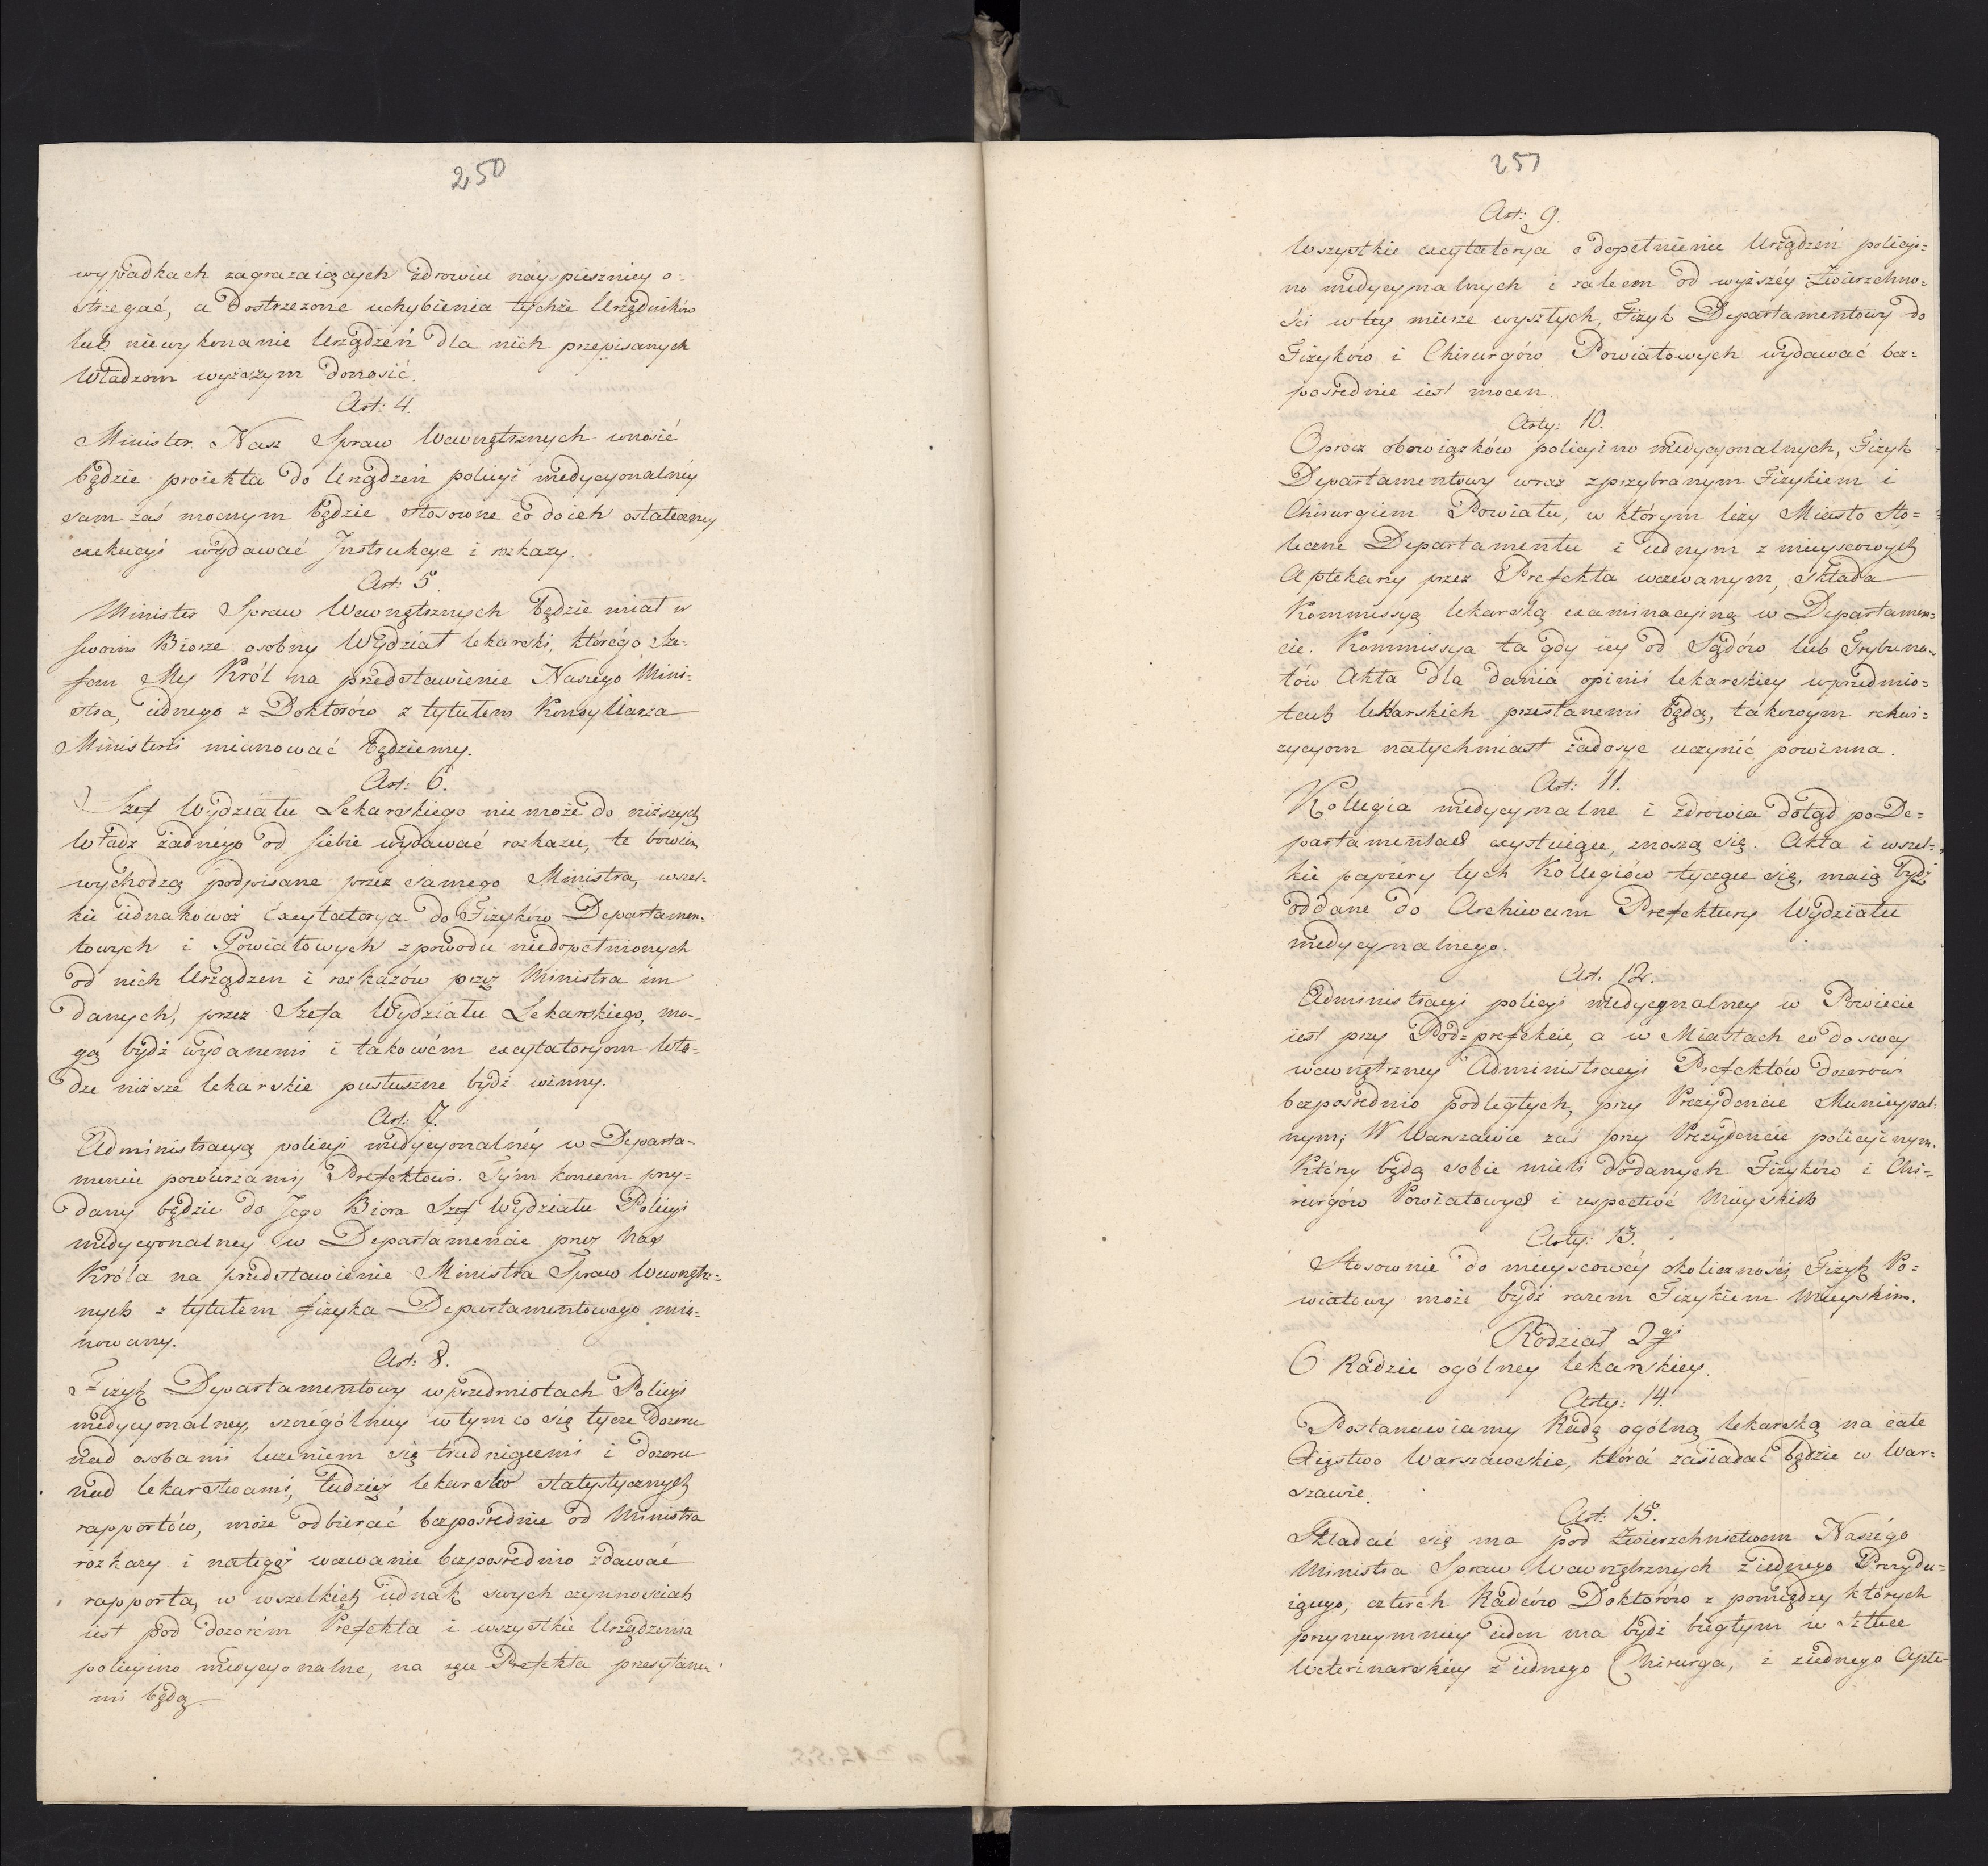 250
wypadkach zagrażaiących zdrowiu nayspieszniey o-
strzegać, a Dostrzezone uchybienia tychże Urzędników
lub niewykonanie Urządzeń Dla nich przepisanych
Władzom wyższym donosić.
Art: 4.
Minister Nasz Spraw Wewnętrznych wnosić
będzie proiekta do Urządzeń policyi medycynalney
sam zaś mocnym będzie stosowne co do ich ostateczney
exekucyi wydawać Instrukcye i rozkazy.
Art: 5.
Minister Spraw Wewnętrznych będzie miał w
swoim Biorze osobny Wydział lekarski, którego Sze-
fem My Król na przedstawienie Naszego Mini-
stra, iednego z Doktorów z tytułem Konsyliarza
Ministerii mianować będziemy.
Art: 6.
Szef Wydziału Lekarskiego nie może do niższych
Władz żadnego od siebie wydawać rozkazu, te bowiem
wychodzą podpisane przez samego Ministra, wszel-
kie iednakowoż Excytatorya do Fizyków Departamen-
towych i Powiatowych z powodu niedopełnionych
od nich Urządzen i rozkazów przez Ministra im
danych, przez Szefa Wydziału Lekarskiego, mo-
gą bydź wydanemi i takowém excytatoryom Wła-
dze niższe lekarskie posłuszne bydź winny.
Art: 7.
Administracyą policyi medycynalnéy w Departa-
mencie powierzamy Prefektowi. Tym końcem przy-
dany będzie do Jego Biora Szef Wydziału Policyi
medycynalney w Departamencie przez Nas
Króla na przedstawienie Ministra Spraw Wewnętrz-
nych z tytułem fizyka Departamentowego mia-
nowany.
Art: 8.
Fizyk Departamentowy w przedmiotach Policyi
medycynalney, szczególniey w tym co się tycze dozoru
nad osobami leczeniem się trudniącemi i dozoru
nad lekarstwami, tudzież lekarsko statystycznych
rapportów, może odbierać bezpośrednie od Ministra
rozkazy i na tegoż wezwanie bezpośrednio zdawać
rapporta, w wszelkich iednak swych czynnościach
iest pod dozorém Prefekta i wszystkie Urządzenia
policyino medycynalne, na ręce Prefekta przesyłane-
mi będą.
251
Art: 9.
Wszystkie excytatorya o dopełnienie Urządzeń policyi-
no medycynalnych i zaleceń od wyższéy Zwierzchno-
ści w tey mierze wyszłych, Fizyk Departamentowy do
Fizyków i Chirurgów Powiatowych wydawać bez-
pośrednie iest mocen
Arty: 10.
Oprócz obowiązków policyino medycynalnych, Fizyk
Departamentowy wraz z przybranym Fizykiem i
Chirurgiem Powiatu, w którym leży Miasto Sto-
łeczne Departamentu i iednym z mieyscowych
Aptekarzy przez Prefekta wezwanym, składa
Kommissyą lekarską examinacyiną w Departamen-
cie. Kommissya ta gdy iey od Sądów lub Trybuna-
łów Akta dla dania opinii lekarskiey w przedmio-
tach lekarskich przesłanemi będą, takowym rekwi-
zycyom natychmiast zadosyć uczynić powinna.
Art: 11.
Kollegia medycynalne i zdrowia dotąd po De-
partamentach exystuiące, znoszą się. Akta i wszel-
kie papiery tych Kollegiów tyczące się, maią bydź
oddane do Archiwum Prefektury Wydziału
medycynalnego.
Art. 12.
Administracyi policyi medycynalney w Powiecie
iest przy Pod-prefekcie, a w Miastach co do swey
wewnętrzney Administracyi Prefektów dozorowi
bezpośrednio podległych, przy Prezydencie Municypal-
nym; W Warszawie zaś przy Prezydencie policyinym.
Którzy będą sobie mieli dodanych Fizyków i Chi-
rurgów Powiatowych i respective Mieyskich
Arty: 13.
Stosownie do mieyscowéy okoliczności, Fizyk Po-
wiatowy może bydź razem Fizykiem Mieyskim.
Rodział 2gi
O Radzie ogólney lekarskiey.
Arty: 14.
Postanawiamy Radę ogólną lekarską na całe
Xięstwo Warszawskie, która zasiadać będzie w War-
szawie.
Art: 15.
Składać się ma pod Zwierzchnictwem Naszégo
Ministra Spraw Wewnętrznych z iednego Prezydu-
iącego, czterech Radców Doktorów z pomiędzy których
przynaymniey ieden ma bydź biegłym w sztuce
Weterinarskiey z iednego Chirurga, i z iednego Apte-